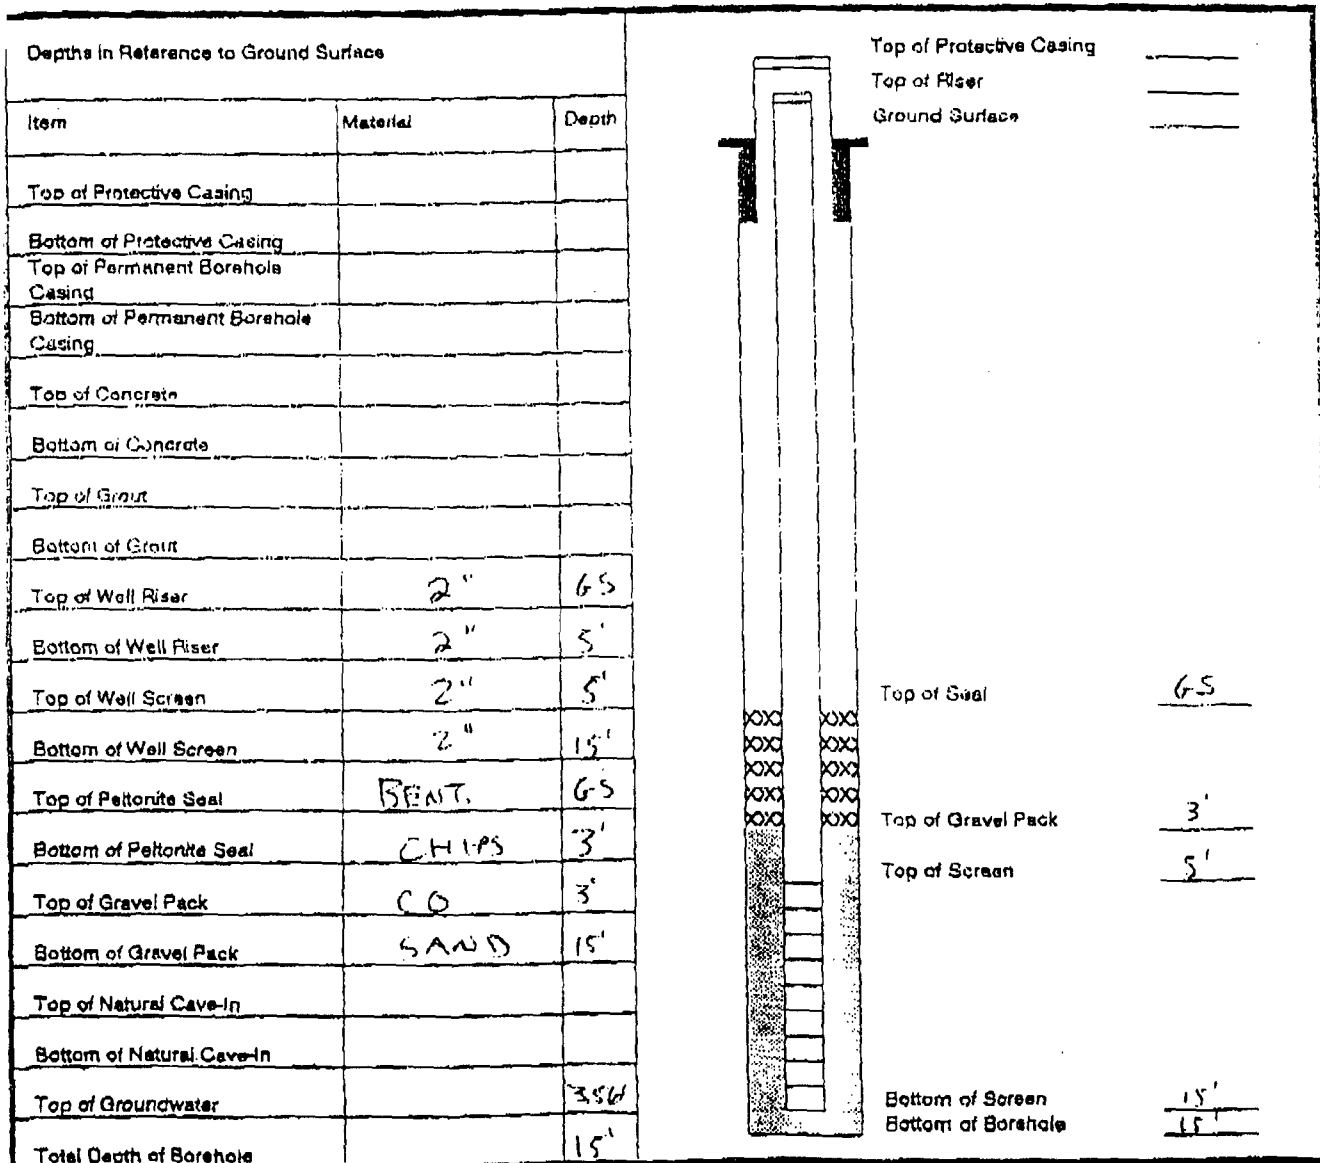 Depths in Reference to Ground Surface
Item Material Depth
Top of Protective Casing
Bottom of Protective Casing
Top of Permanent Borehole
Casing
Bottom of Permanent Borehole
Casing
Top of Concrete
Bottom of Concrete
Top of Grout
Bottom of Grout
Top of Well Riser 2" GS
Bottom of Well Riser 2" 5'
Top of Well Screen 2" 5'
Bottom of Well Screen 2" 15'
Top of Peltonite Seal BENT. GS
Bottom of Peltonite Seal CHIPS 3'
Top of Gravel Pack CO 3'
Bottom of Gravel Pack SAND 15'
Top of Natural Cave-In
Bottom of Natural Cave-In
Top of Groundwater
Total Depth of Borehole 15'
Top of Protective Casing
Top of Riser
Ground Surface
Top of Seal GS
Top of Gravel Pack 3'
Top of Screen 5'
Bottom of Screen 15'
Bottom of Borehole 15'